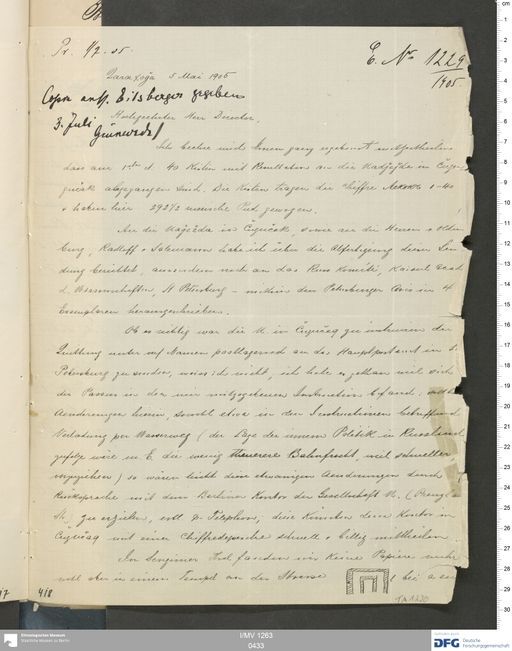 Pr. 1/7. 05.
E. No 1229
1905.
Qara Xoja 5 Mai 1905
Copie an H. Eilsberger gegeben
3. Juli
Grünwedel
Hochgeehrter Herr Director,
Ich beehre mich Ihnen ganz ergebenst mitzutheilen
dass am 1ten d. 40 Kisten mit Resultaten an die Nadježda in Čugu-
čak abgegangen sind. Die Kisten tragen die Chiffre 1-40
+ haben hier russische Pud gewogen.
An die Nadježda in Čugučak, sowie an die Herren v Olden
burg, Radloff + Salemann habe ich über die Abfertigung dieser Sen
dung berichtet, ausserdem noch an das Russ Komité, Kaiserl Acad
d. Wissenschaften, St Petersburg – mithin den Petersburger Avis in 4
Exemplaren herausgeschrieben.
Ob es richtig war die N. in Čugučaq zu ersuchen die
Quittung unter m/ Namen postlagernd an das Hauptpostamt in St.
Petersburg zu senden, weiss ich nicht, ich habe es gethan weil sich
der Passus in den mir mitgegebenen Instruktionen befand.
Aenderungen hierin, sowohl etwa in den Instructionen betreffend
Verladung per Wasserweg (der Lage der inneren Politik in Russland
zufolge wäre m. E. die wenig theuerere Bahnfracht, weil schneller
vorzuziehen) so wären leicht dem etwaigen Aenderungen durch
Rücksprache mit dem Berliner Kontor der Gesellschaft N.
St. zu erzielen, evtl p. Telephon, diese könnten dem Kontor in
Čugučaq mit einer Chiffredepesche schnell + billig mittheilen
Im Sengimer Thal fanden wir keine Papiere mehr
wohl aber in einem Tempel an der Strasse bei
TA 1220
417
418
Ethnologisches Museum
Staatliche Museen zu Berlin
I/MV 1263
0433
DFG
Deutsche
Forschungsgemeinschaft